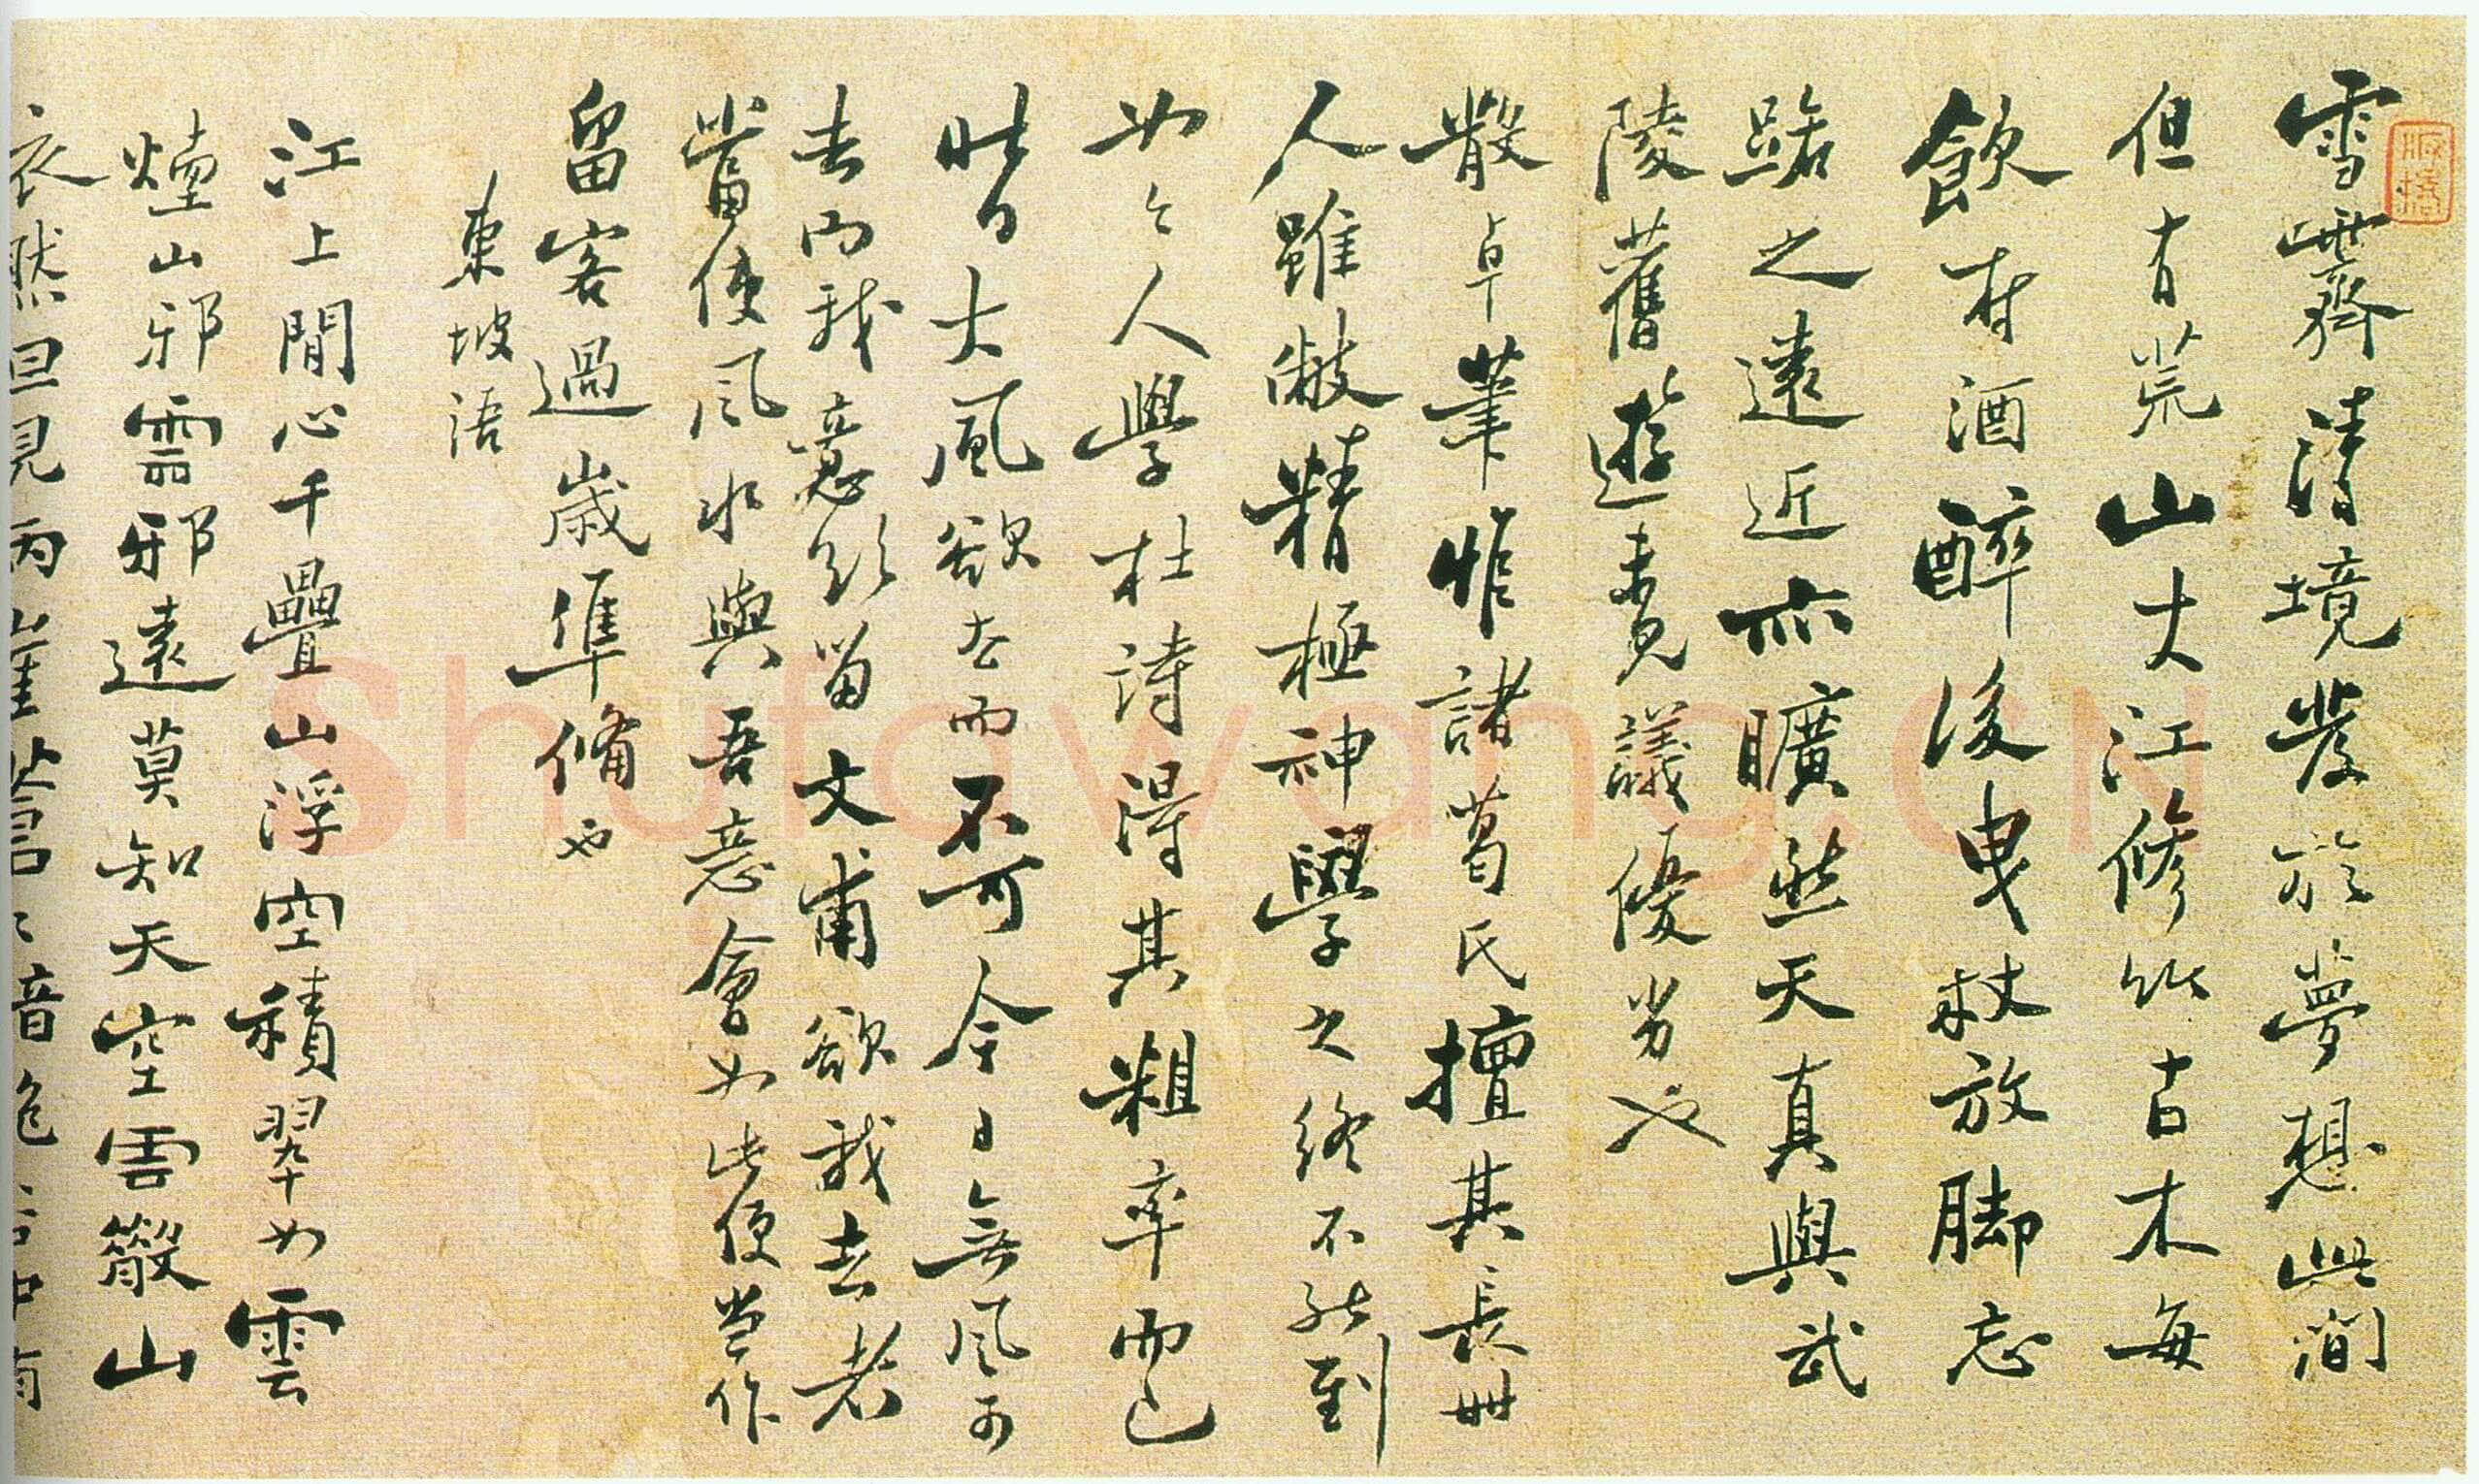 雪霽清境發於夢想此間
但有荒山大江修竹古木每
飲村酒醉後曳杖放脚忘
路之遠近亦曠然天真與武
陵舊遊未見議優劣也
散卓筆惟諸葛氏擅其長世
人雖倣精極神學之終不能到
如今人學杜詩得其粗率而已
昔日大風欲去而不可今日無風可
去而我意欲留文甫欲我去者
當使風水與吾意會如此便当作
留客過歲準備也
東坡語
江上閒心千疊山浮空積翠如雲
煙山邪雲邪遠莫知天空雲散山
依然但見兩崖蒼〻暗絕谷中有
Shufawang.CN